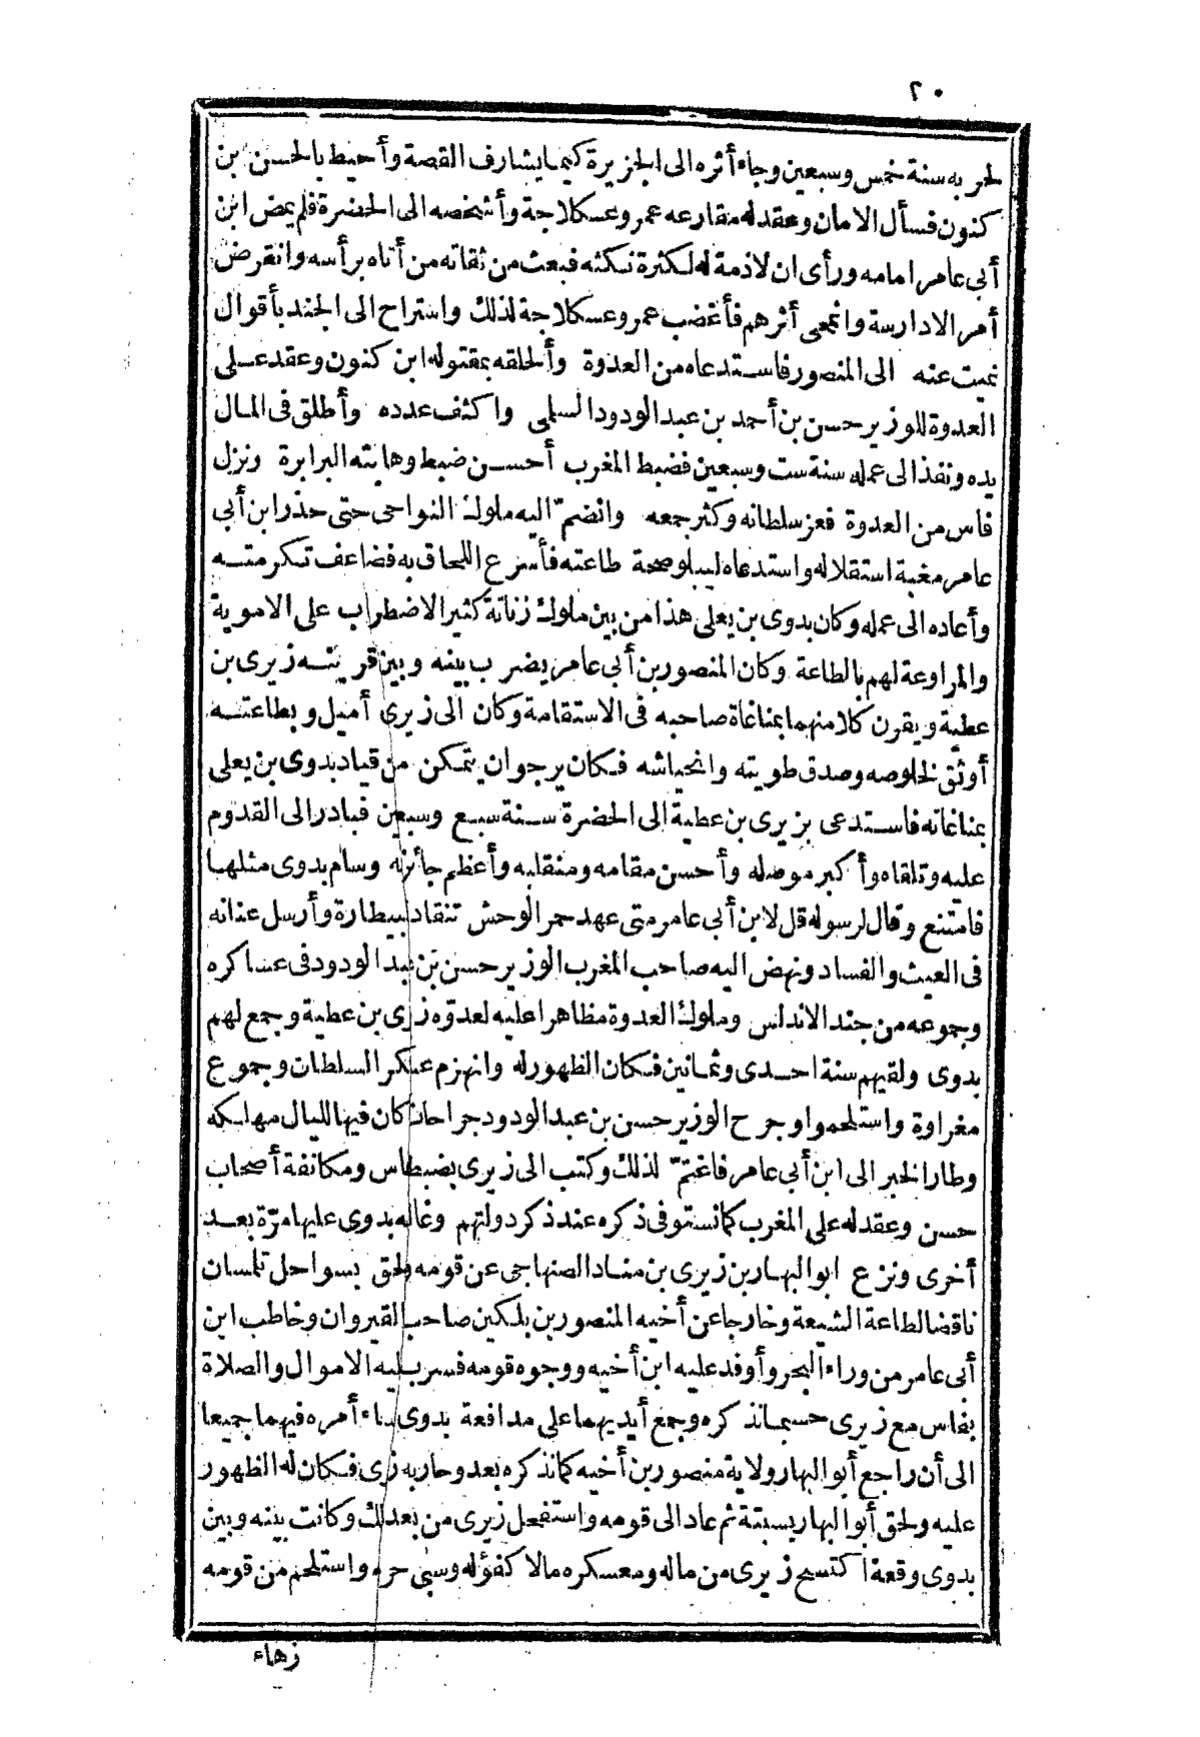 ٢٠
لحربه سنة خمس وسبعين وجاء أثره الى الجزيرة كيما يشارف القصة وأحيط بالحسن بن
كنون فسأل الامان وعقد له مقارعه عمرو عسكلاجة وأشخصه الى الحضرة فلم يمض ابن
أبي عامر امامه ورأى ان لاذمة له لكثرة نكثه فبعث من ثقاته من أتاه برأسه وانقرض
أمر الادارسة وانمحى أثرهم فأغضب عمرو عسكلاجة لذلك واستراح الى الجند بأقوال
نميت عنه الى المنصور فاستدعاه من العدوة وألحقه بمقتوله ابن كنون وعقد على
العدوة للوزير حسن بن أحمد بن عبد الودود السلمى واكثف عدده وأطلق فى المال
يده ونفذ الى عمله سنة ست وسبعين فضبط المغرب أحسن ضبط وهابته البرابرة ونزل
فاس من العدوة فعز سلطانه وكثر جمعه وانضمّ اليه ملوك النواحى حتى حذر ابن أبي
عامر مغبة استقلاله واستدعاه ليبلو صحة طاعته فأسرع اللحاق به فضاعف تكرمته
وأعاده الى عمله وكان بدوى بن يعلى هذا من بين ملوك زناتة كثير الاضطراب على الاموية
والمراوغة لهم بالطاعة وكان المنصور بن أبي عامر يضرب بينه وبين قرينه زيرى بن
عطية ويقرن كلا منهما بمناغاة صاحبه فى الاستقامة وكان الى زيرى أميل وبطاعته
أوثق لخلوصه وصدق طويته وانحياشه فكان يرجو ان يتمكن من قياد بدوى بن يعلى
بمناغاته فاستدعى بزيرى بن عطية الى الحضرة سنة سبع وسبعين فبادر الى القدوم
عليه وتلقاه وأكبر موصله وأحسن مقامه ومنقلبه وأعظم جائزته وسام بدوى مثلها
فامتنع وقال لرسوله قل لابن أبي عامر متى عهد حمر الوحش تنقاد لبيطارة وأرسل عنانه
فى العيث والفساد ونهض اليه صاحب المغرب الوزير حسن بن عبد الودود فى عساكره
وجموعه من جند الاندلس وملوك العدوة مظاهرا عليه لعدوّه زيرى بن عطية وجمع لهم
بدوى ولقيهم سنة احدى وثمانين فكان الظهور له وانهزم عسكر السلطان وجموع
مغراوة واستلحموا وجرح الوزير حسن بن عبد الودود جراحات كان فيها لليال مهلكه
وطار الخبر الى ابن أبي عامر فاغتمّ لذلك وكتب الى زيرى بضبط فاس ومكانفة أصحاب
حسن وعقد له على المغرب كما نستوفى ذكره عند ذكر دولتهم وغالبه بدوى عليها مرّة بعد
أخرى ونزع ابو البهار بن زيرى بن مناد الصنهاجى عن قومه ولحق بسواحل تلمسان
ناقضا لطاعة الشيعة وخارجا عن أخيه المنصور بن بلكين صاحب القيروان وخاطب ابن
أبى عامر من وراء البحر وأوفد عليه ابن أخيه ووجوه قومه فسرب اليه الاموال والصلاة
بفاس مع زيرى حسبما نذكره وجمع أيديهما على مدافعة بدوى فساء أمره فيهما جميعا
الى أن راجع أبو البهار ولاية منصور بن أخيه كما نذكره بعد وحاربه زيرى فكان له الظهور
عليه ولحق أبو البهار بسبتة ثم عاد الى قومه واستفحل زيرى من بعد ذلك وكانت بينه وبين
بدوى وقعة اكتسح زيرى من ماله ومعسكره مالا كفؤ له وسبى حرمه واستلحم من قومه
زهاء